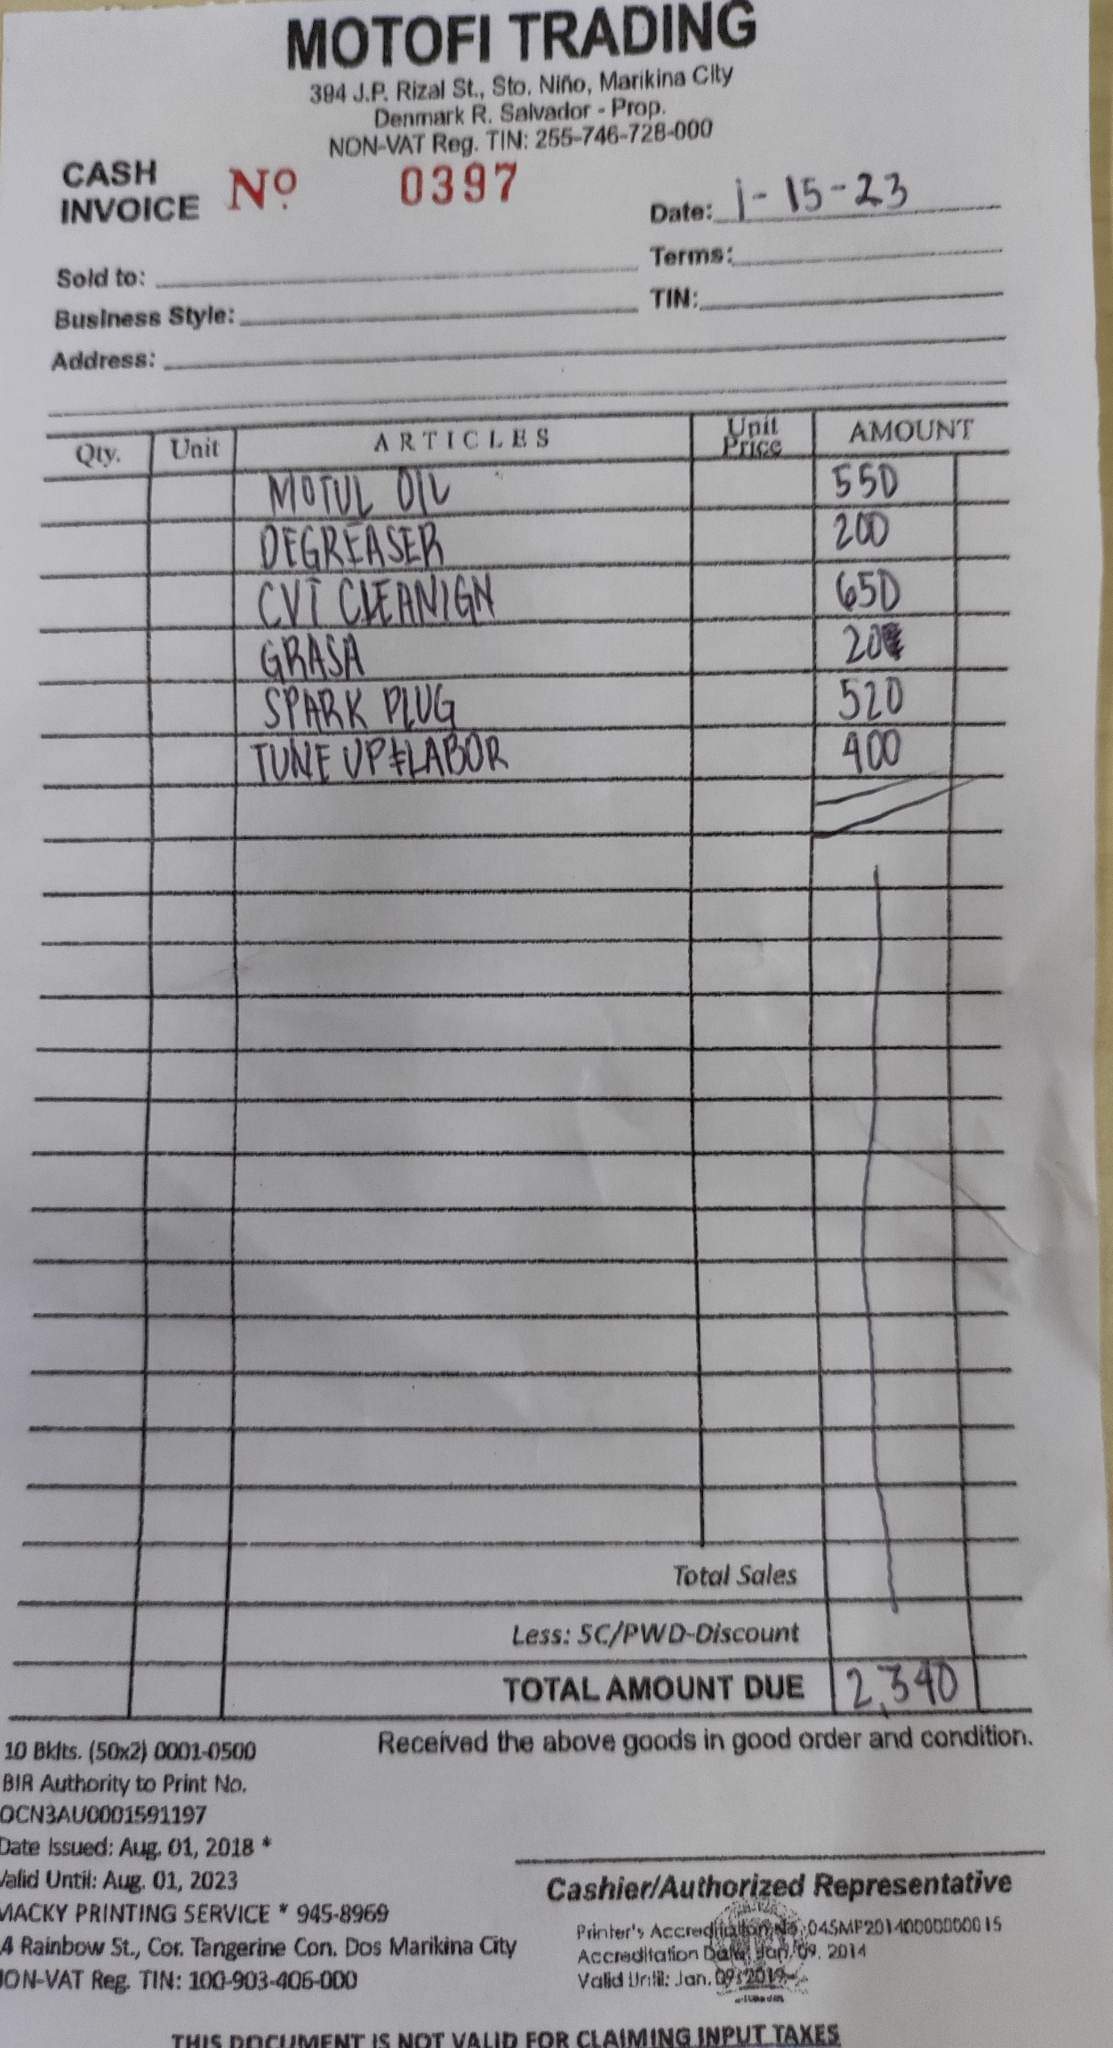 MOTOFI TRADING
394 J.P. Rizal St., Sto. Niño, Marikina City
Denmark R. Salvador - Prop.
NON-VAT Reg. TIN: 255-746-728-000
CASH INVOICE Nº 0397
Date: 1-15-23
Sold to:
Terms:
Business Style:
TIN:
Address:
Qty. Unit ARTICLES Unit Price AMOUNT
MOTUL OIL 550
DEGREASER 200
CVT CLEANIGN 650
GRASA 20
SPARK PLUG 520
TUNE UP & LABOR 400
Total Sales
Less: SC/PWD-Discount
TOTAL AMOUNT DUE 2,340
Received the above goods in good order and condition.
10 Bklts. (50x2) 0001-0500
BIR Authority to Print No.
OCN3AU0001591197
Date Issued: Aug. 01, 2018 *
Valid Until: Aug. 01, 2023
MACKY PRINTING SERVICE * 945-8969
4 Rainbow St., Cor. Tangerine Con. Dos Marikina City
NON-VAT Reg. TIN: 100-903-406-000
Cashier/Authorized Representative
Printer's Accreditation No. 045MP20140000000015
Accreditation Date: Jan. 09, 2014
Valid Until: Jan. 09, 2019
THIS DOCUMENT IS NOT VALID FOR CLAIMING INPUT TAXES